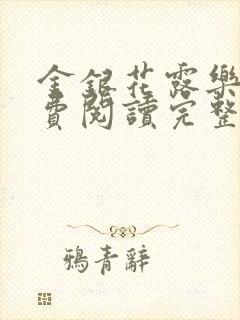 金銀花露樂
費閱讀完整
鴉青辭